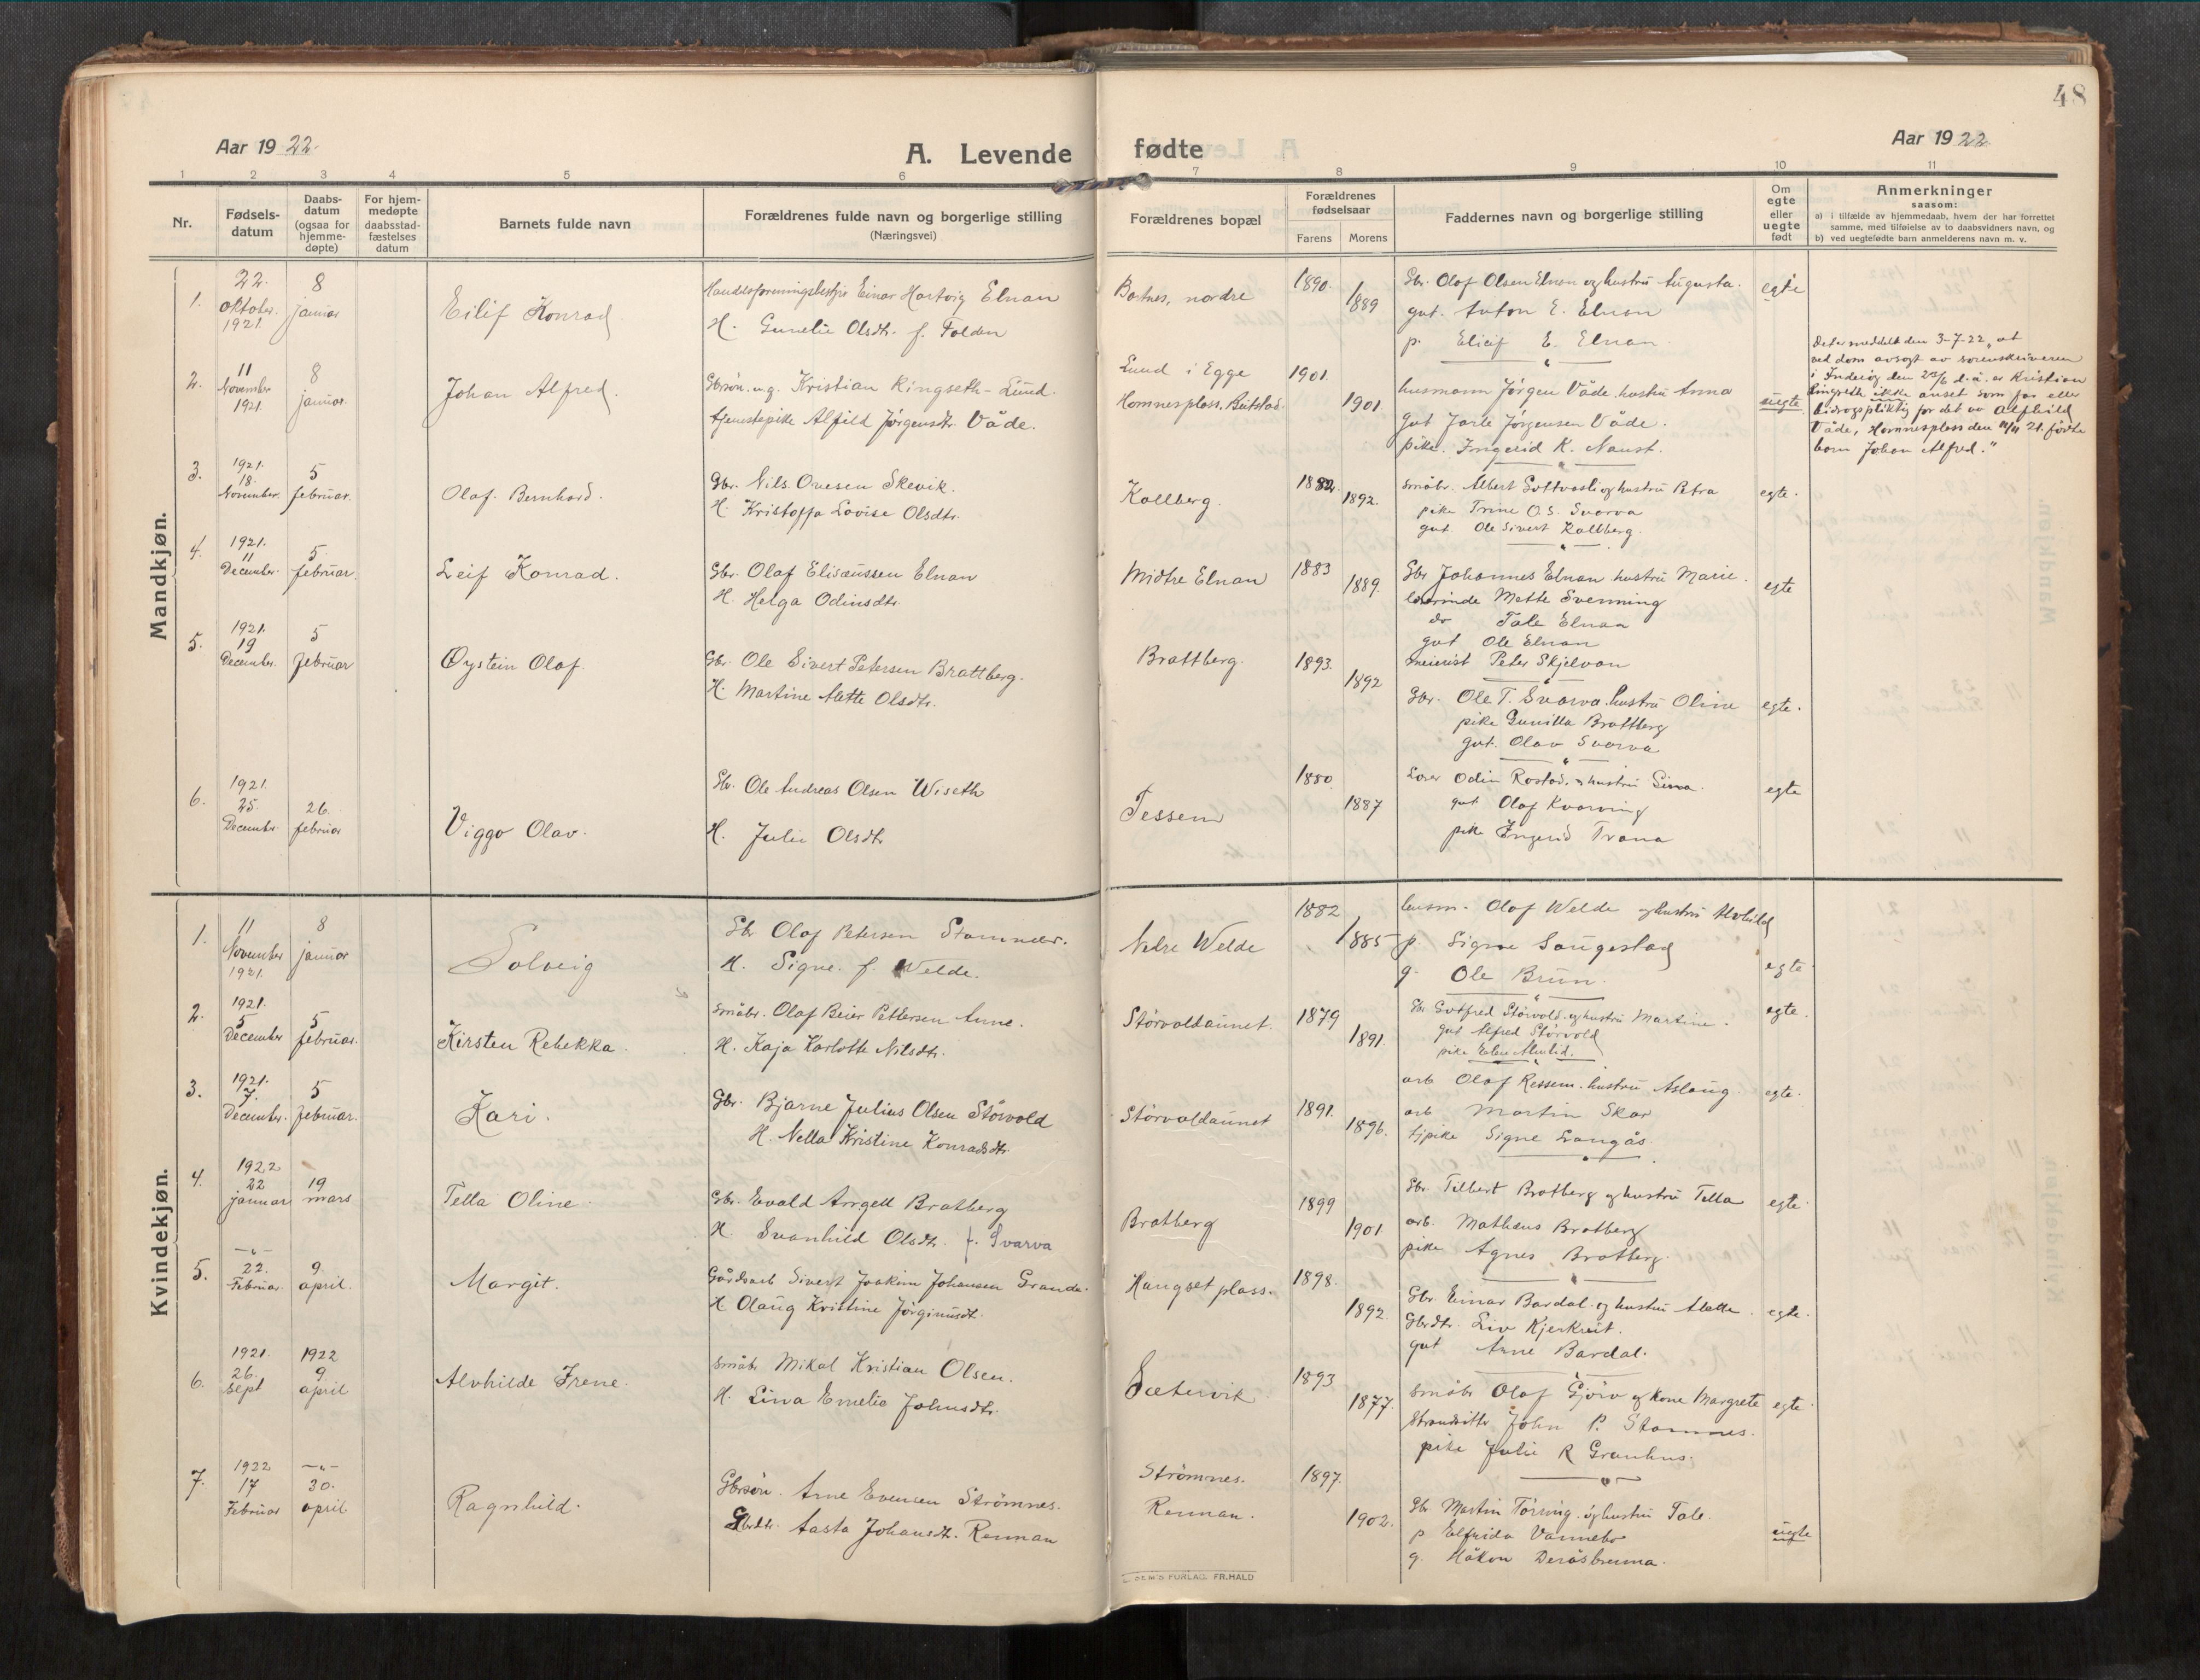 48
Aar 1922.
A. Levende fødte
Aar 1922
1 2 3 4 5 6 7 8 9 10 11
Nr.
Fødsels-
datum
Daabs-
datum
(ogsaa for
hjemme-
døpte)
For hjem-
medøpte
daabsstad-
fæstelses
datum
Barnets fulde navn
Forældrenes fulde navn og borgerlige stilling
(Næringsvei)
Forældrenes bopæl
Forældrenes
fødselsaar
Farens Morens
Faddernes navn og borgerlige stilling
Om
egte
eller
uegte
født
Anmerkninger
saasom:
a) i tilfælde av hjemmedaab, hvem der har forrettet
samme, med tilføielse av to daabsvidners navn, og
b) ved uegtefødte barn anmelderens navn m. v.
Mandkjøn.
1.
22.
Oktober.
1921
8
januar
Eilif Konrad.
Einar Hartvig Elnan
H. Gunelie Olsdtr. f. Folden
Bartnes, nordre
1890.
1889
Gbr. Olaf Olsen Elnan og hustru Augusta.
gut. Anton E. Elnan
p. E. Elnan
egte
2.
11
November
1921.
8
januar.
Johan Alfred.
Gbrsøn. u.g. Kristian Ringseth-Lund.
tjenestepike Alfild Jørgensdtr. Våde.
Lund i Egge
Homnesplass. Beitstad.
1901.
1901.
husmann Jørgen Våde. hustru Anna
gut Jarle Jørgensen Våde.
pike. Ingerid K. Naust.
uegte.
Det er meddelt den 3-7-22 „at
ved dom avsagt av sorenskriveren
i Inderøy den 23/6 d.å. er Kristian
Ringseth ikke anset som far eller
bidragspliktig for det av Alfhild
Våde, Homnesplass den 11/11 21. fødte
barn Johan Alfred."
3.
1921.
18.
November.
5
februar.
Olaf Bernhard.
Gbr. Nils Ovesen Skevik.
H. Kristoffa Lovise Olsdtr.
Kallberg.
1892.
småbr. Albert og hustru Petra
pike Trine O.S. Svarva
gut. Ole Sivert Kallberg.
egte.
4.
1921.
11
December.
5
februar.
Leif Konrad.
Gbr. Olaf Elisæussen Elnan
H. Helga Odinsdtr.
Midtre Elnan
1883
1889.
Gbr. Johannes Elnan hustru Marie.
lærerinde Mette Svenning
do Tale Elnan
gut Ole Elnan
meierist Peter Skjelvan
egte
5.
1921.
19
December.
5
februar
Øystein Olaf.
Gbr. Ole Sivert Petersen Brattberg.
H. Martine Mette Olsdtr.
Brattberg.
1893.
1892
Gbr. Ole T. Svarva. hustru Oline
pike Gunilla Brattberg
gut. Olav Svarva
egte.
6.
1921.
25.
December
26.
februar
Viggo Olav.
Gbr. Ole Andreas Olsen Wiseth
H. Julie Olsdtr
Tessem
1880.
1887
Lærer Odin Rostad. og hustru
gut Olaf Kvarving
pike Ingerid Trana
egte
Kvindekjøn.
1.
11
November
1921.
8
januar
Solveig
Gbr Olaf Petersen Stamnes.
H. Signe. f. Welde.
Nedre Welde
1882
1885
husm. Olaf Welde og hustru Alvhild
p. Signe Saugestad
g. Ole Brun.
egte
2.
1921.
5
December
5
februar.
Kirsten Rebekka.
småbr. Olaf Beier Pettersen Aune.
H. Kaja Karlotte Nilsdtr.
Størvoldaunet.
1879
1891.
Gbr Gotfred Størvold. og hustru Martine.
gut Alfred Størvold
pike
egte.
3.
1921.
7.
December.
5
februar.
Kari.
Gbr. Bjarne Julius Olsen Størvold
H. Nella Kristine Konradsdtr.
Størvoldaunet
1891.
1896.
arb Olaf Ressem. hustru Aslaug.
arb Martin Skar
tjpike Signe Langås
egte.
4.
1922
22
januar
19
mars
Tella Oline
Gbr. Evald Arngell Bratberg
H. Svanhild Olsdtr. f. Svarva
Bratberg
1899
1901
Gbr. Tilbert Bratberg og hustru Tella
arb. Mathæus Bratberg
pike Agnes Bratberg.
egte.
5.
—„—
22.
Februar.
9.
april.
Margit.
Gårdsarb Sivert Joakim Johansen Grande.
H. Olaug Kristine Jørginusdtr.
Haugset plass.
1898.
1892.
Gbr Einar Bardal. og hustru Alette.
Gbrdtr. Liv Kjerkeit.
gut Arne Bardal.
egte.
6.
1921.
26.
sept
1922
9
april
Alvhilde Irene.
småbr Mikal Kristian Olsen.
H. Lina Emelie Johnsdtr.
Sætervik
1893
1877.
småbr Olaf Gjørv og kone Margrete
Strandsitter John P. Stamnes.
pike Julie R Granhus.
egte
7.
1922
17
Februar
—„—
30.
april.
Ragnhild.
Gbrsøn. Arne Evensen Strømnes.
Gbrdtr. Aasta Johansdtr. Rennan
Strømnes.
Rennan.
1897.
1902.
Gbr Martin Tørring. og hustru Tale.
p Elfrida Vannebo
g. Håkon
uegte
SEM'S FORLAG, FR.HALD